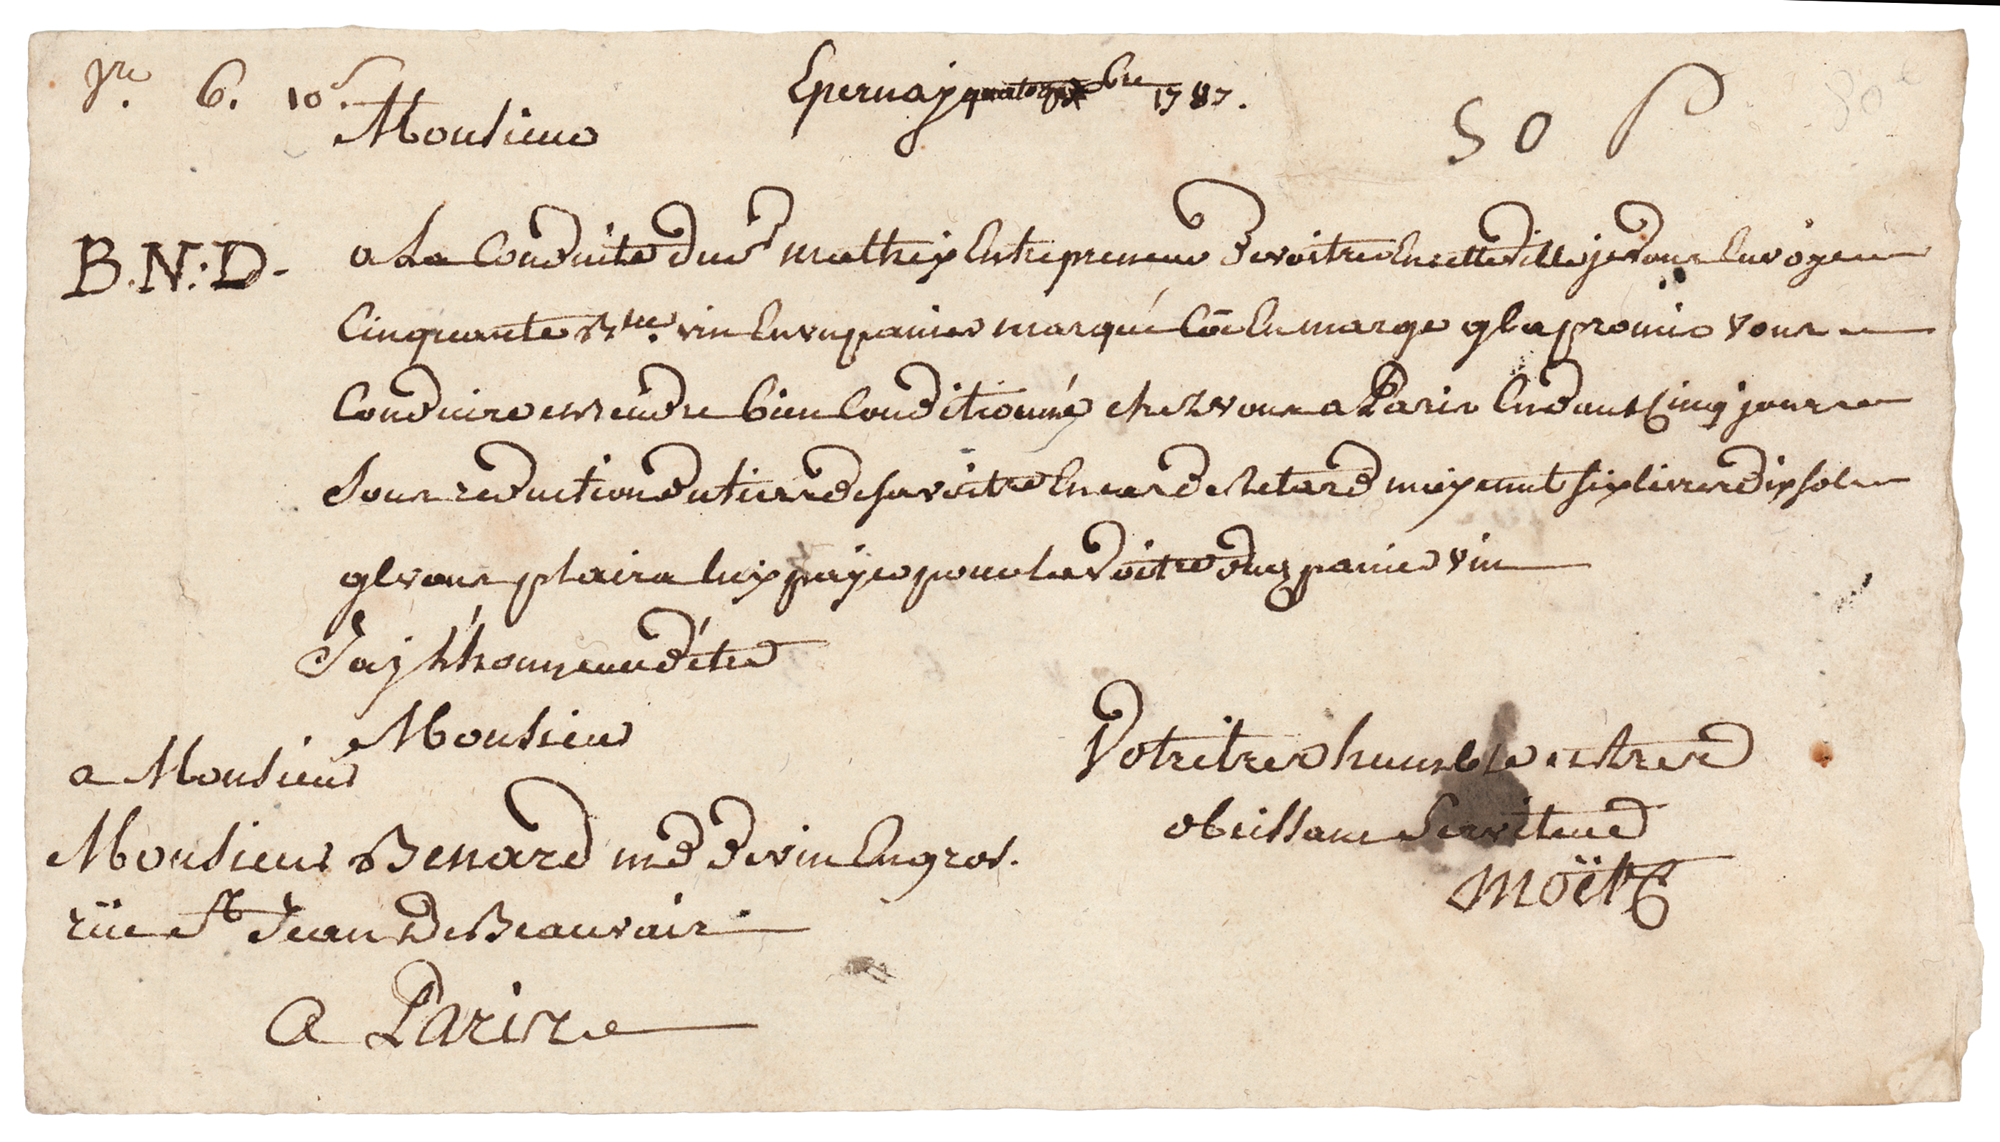 6. 10s.
Epernay 1787.
Monsieur
50
B.N:D-
a La Conduite du Sr mathix Entrepreneur de voitres En cette ville je vous Envoyeu
Cinquante Blles. vin En un panier marqué Cõe En marge ql a promis vous
Conduire et rendre bien Conditionné chez vous a Paris En dans Cinq jours
Sous reduction du tiers de sa voitre En cas de Retard moyenant six livres dix sols
ql vous plaira luy payer pour La Voitre du panier vin
J'ay L'honneur d'être
Monsieur
Votre tres humble et tres
obeissant Serviteur
Moët
a Monsieur
Monsieur Benard md de vin En gros.
rüe St Jean De Beauvais
A Paris